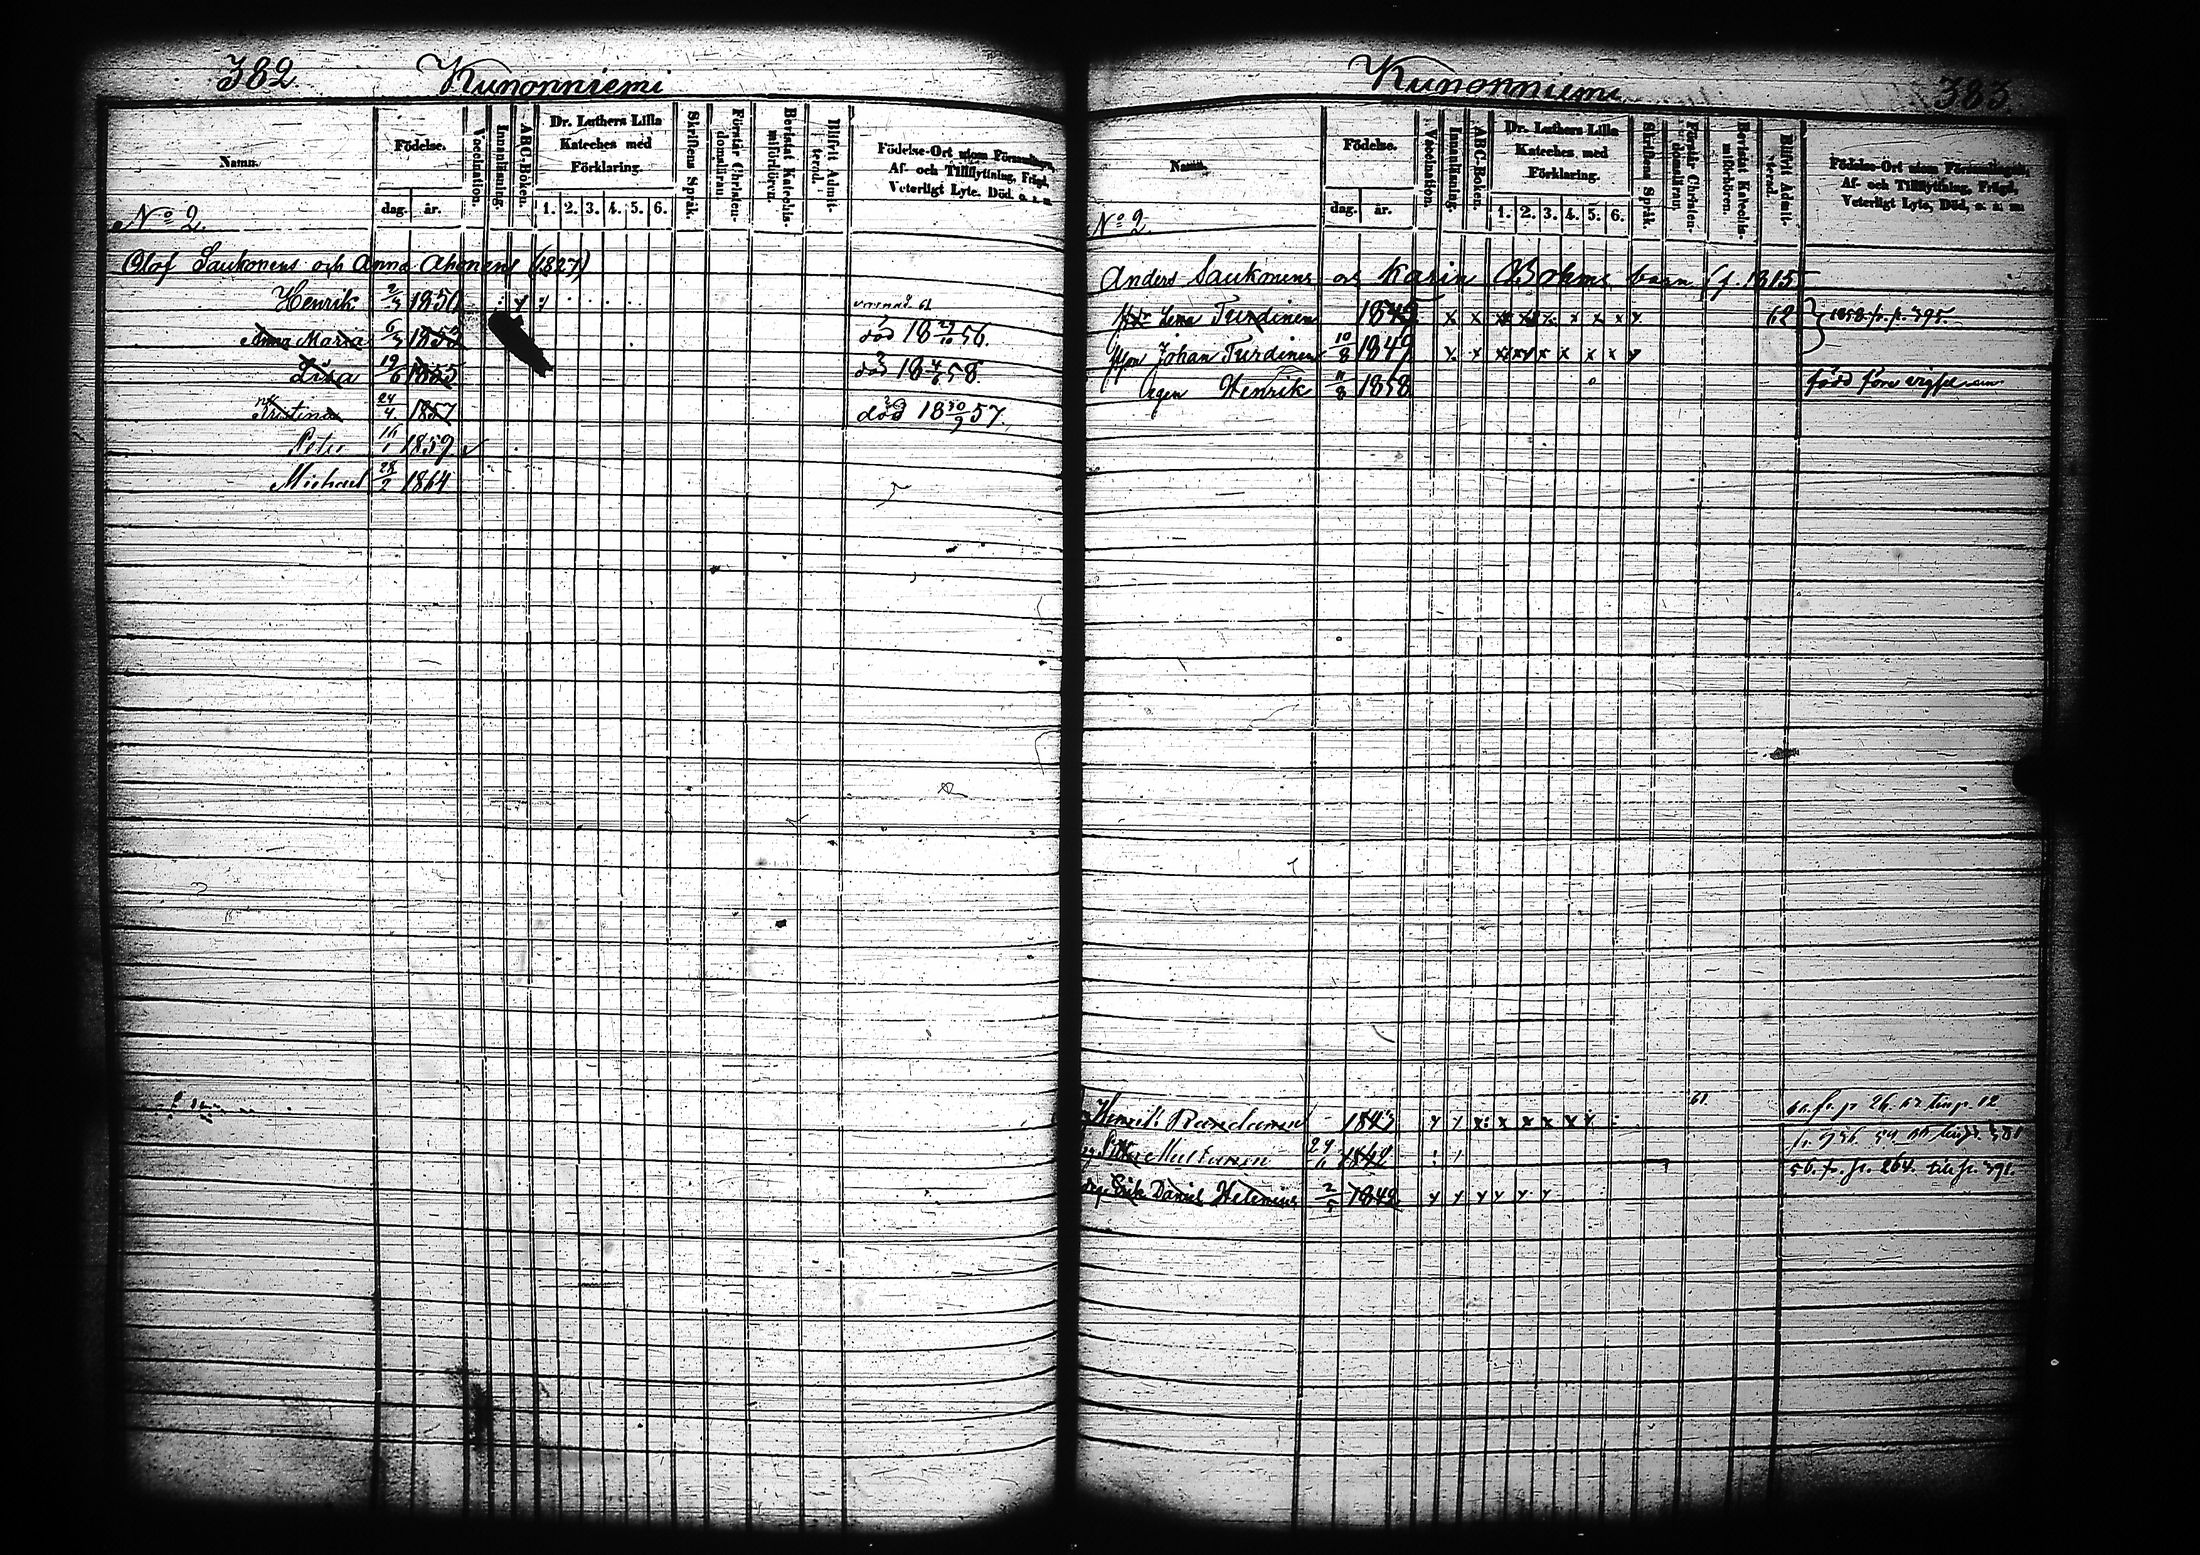 382. Kunonniemi
Namn. Födelse. dag. år. Vaccination. Innanläsning. ABC-Boken. Dr. Luthers Lilla Kateches med Förklaring. 1. 2. 3. 4. 5. 6. Skriftens Språk. Förstår Christendomsläran. Bevistat Katechismiförhören. Blifvit Admitterad. Födelse-Ort utom Församlingen, Af- och Tillflyttning, Frägd, Veterligt Lyte. Död. o. s. m.
No 2.
Olof Saukonens och Anna Ahonens (1827)
Henrik 2/3 1850 61
Anna Maria 6/3 1853 död 18 56
Lisa 19/6 1855 död 18 4/6 58.
Kristina 24/4 1857 död 18 30/9 57.
Peter 1859
Michael 28/2 1864
Kunonniemi 383
Namn. Födelse. dag. år. Vaccination. Innanläsning. ABC-Boken. Dr. Luthers Lilla Kateches med Förklaring. 1. 2. 3. 4. 5. 6. Skriftens Språk. Förstår Christendomsläran. Bevistat Katechismiförhören. Blifvit Admitterad. Födelse-Ort utom Församlingen, Af- och Tillflyttning, Frägd, Veterligt Lyte, Död, o. s. m
No 2.
Anders Saukonens och Karin Bohms barn (f. 1815
Lena Turdinen 1845 x x x x x x x 62 1858 fr. p. 395.
Johan Turdinen 10/8 1849 x x x x x x x x
Henrik 11/8 1858 född före vigseln
Henrik 1843 61 fr. p 26. 62 till p. 12
Petter Multanen 29/6 1842
Erik Daniel Helenius 2/5 1842 56. fr. p. 264. till p. 391.